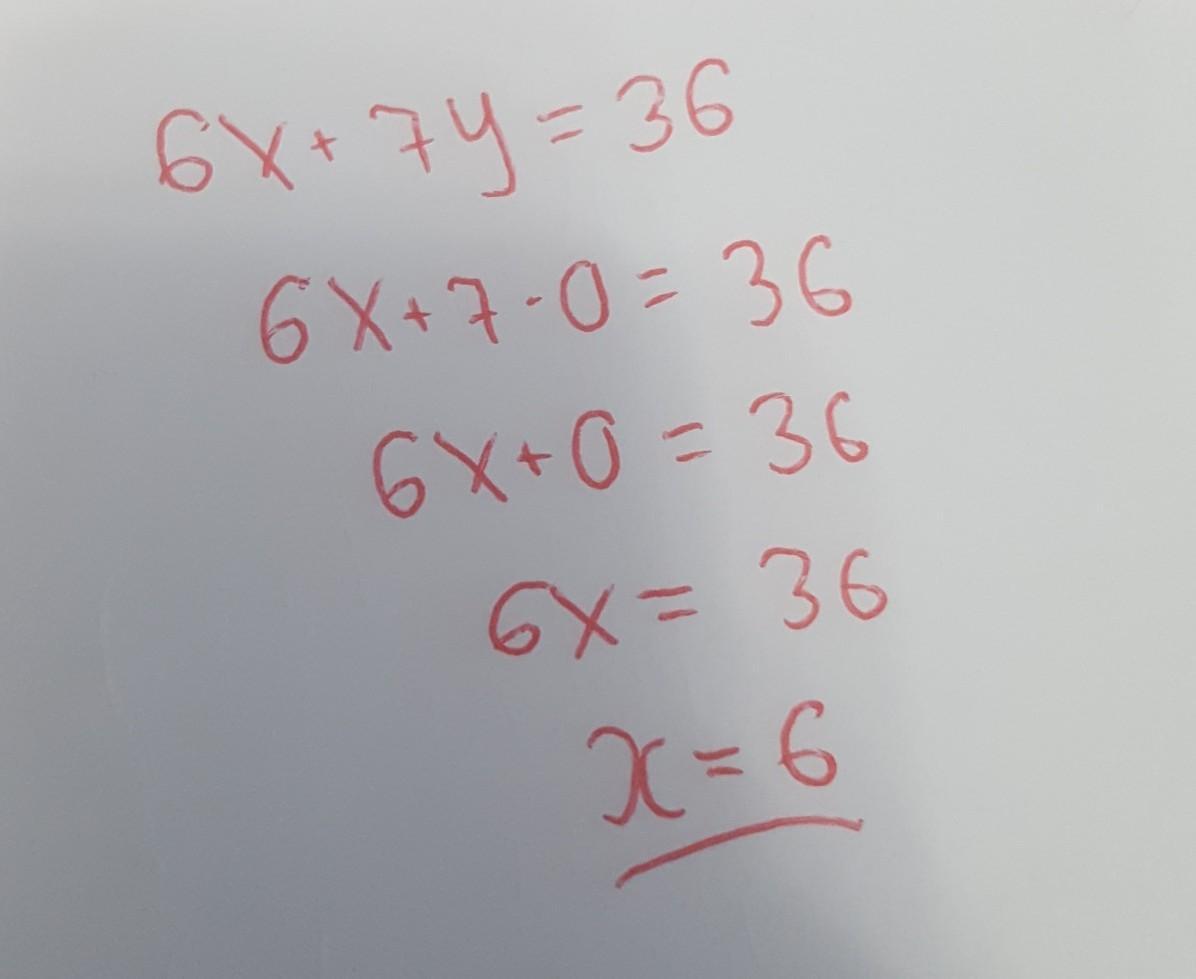 6x + 7y = 36
6x + 7 · 0 = 36
6x + 0 = 36
6x = 36
x = 6